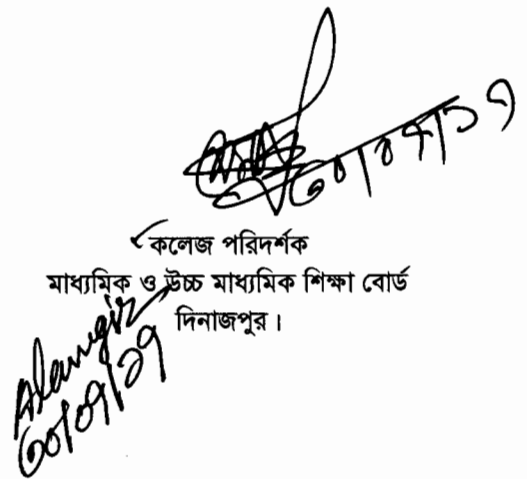 ৩০/০৭/১৭
কলেজ পরিদর্শক
মাধ্যমিক ও উচ্চ মাধ্যমিক শিক্ষা বোর্ড
দিনাজপুর।
Alamgir
৩০/০৭/১৭